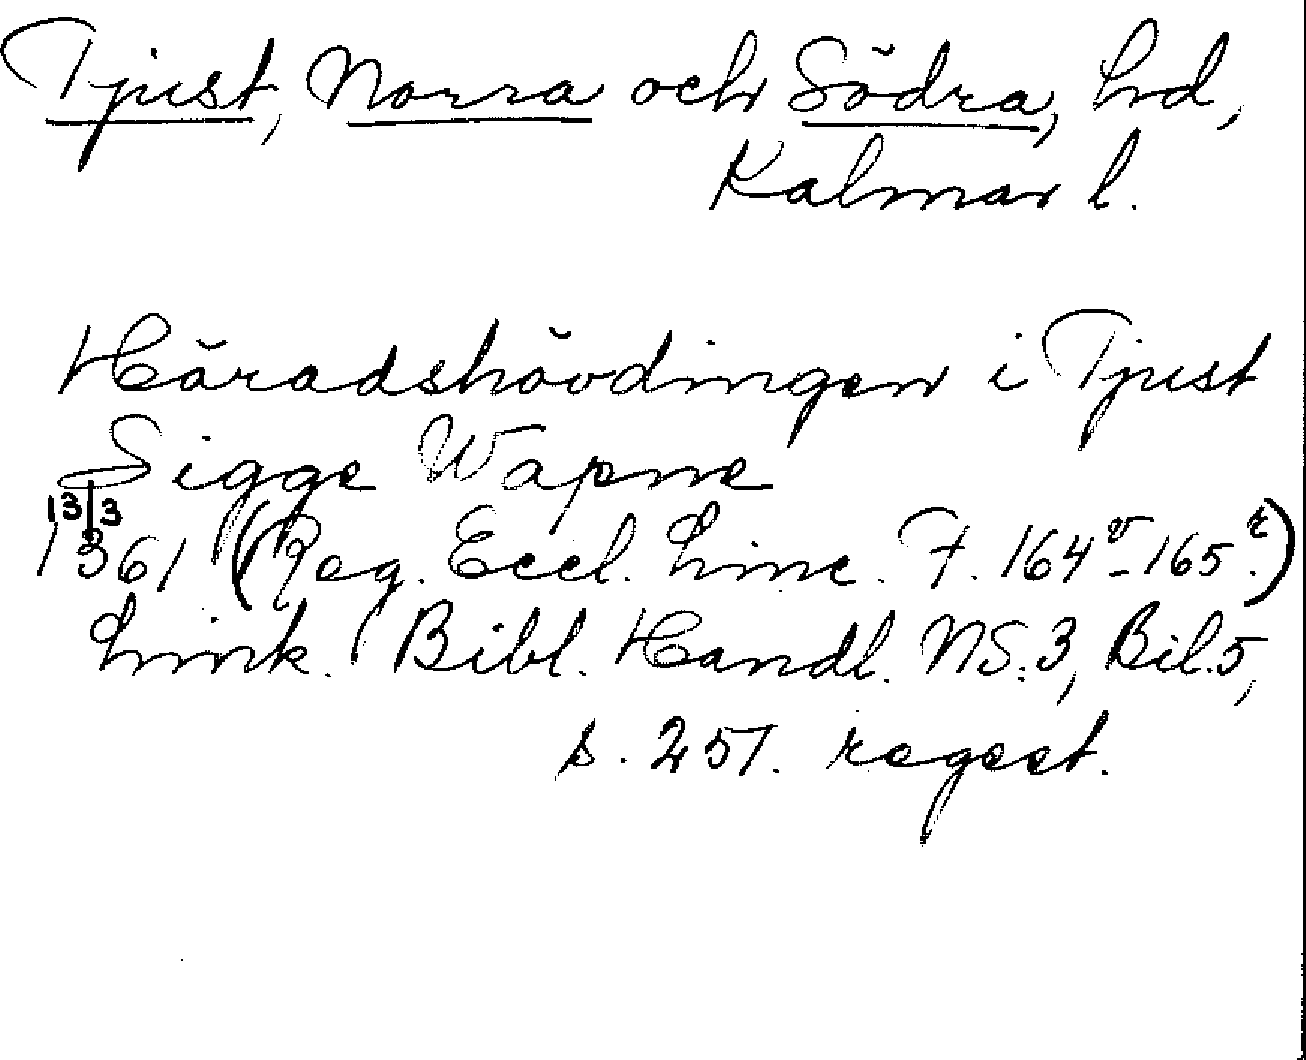 Tjust, Norra och Södra, hd,
Kalmar l.
Häradshövdingen i Tjust
Sigge Wapne
13/3
1361 (Reg. Eccl. Linc. F. 164v-165r.)
Link. Bibl. Handl. NS.3, Bil.5,
s. 257. regest.